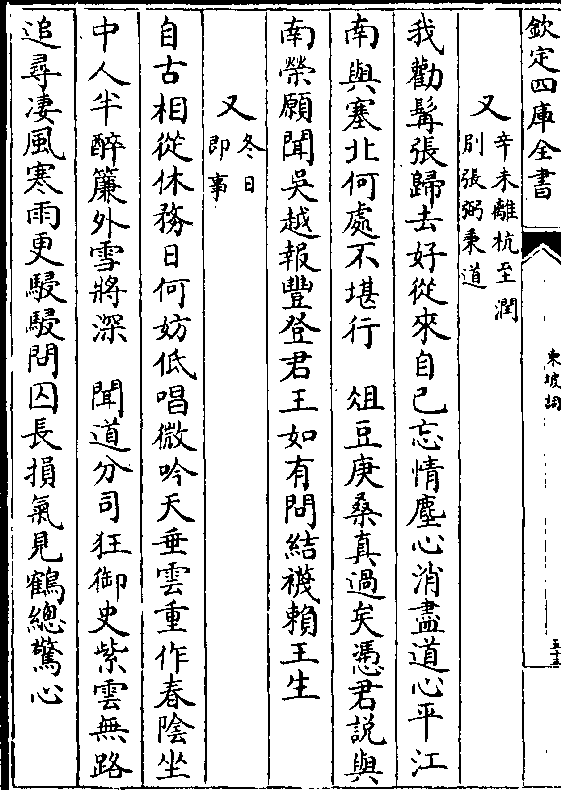 欽定四庫全書
東坡詞
五十五
又辛未離杭至潤
別張弼秉道
我勸髯張歸去好從來自己忘情塵心消盡道心平江
南與塞北何處不堪行　俎豆庚桑真過矣憑君説與
南榮願聞吳越報豐登君王如有問結襪賴王生
又冬日
即事
自古相從休務日何妨低唱微吟天垂雲重作春隂坐
中人半醉簾外雪將深　聞道分司狂御史紫雲無路
追尋凄風寒雨更駸駸問囚長損氣見鶴總驚心